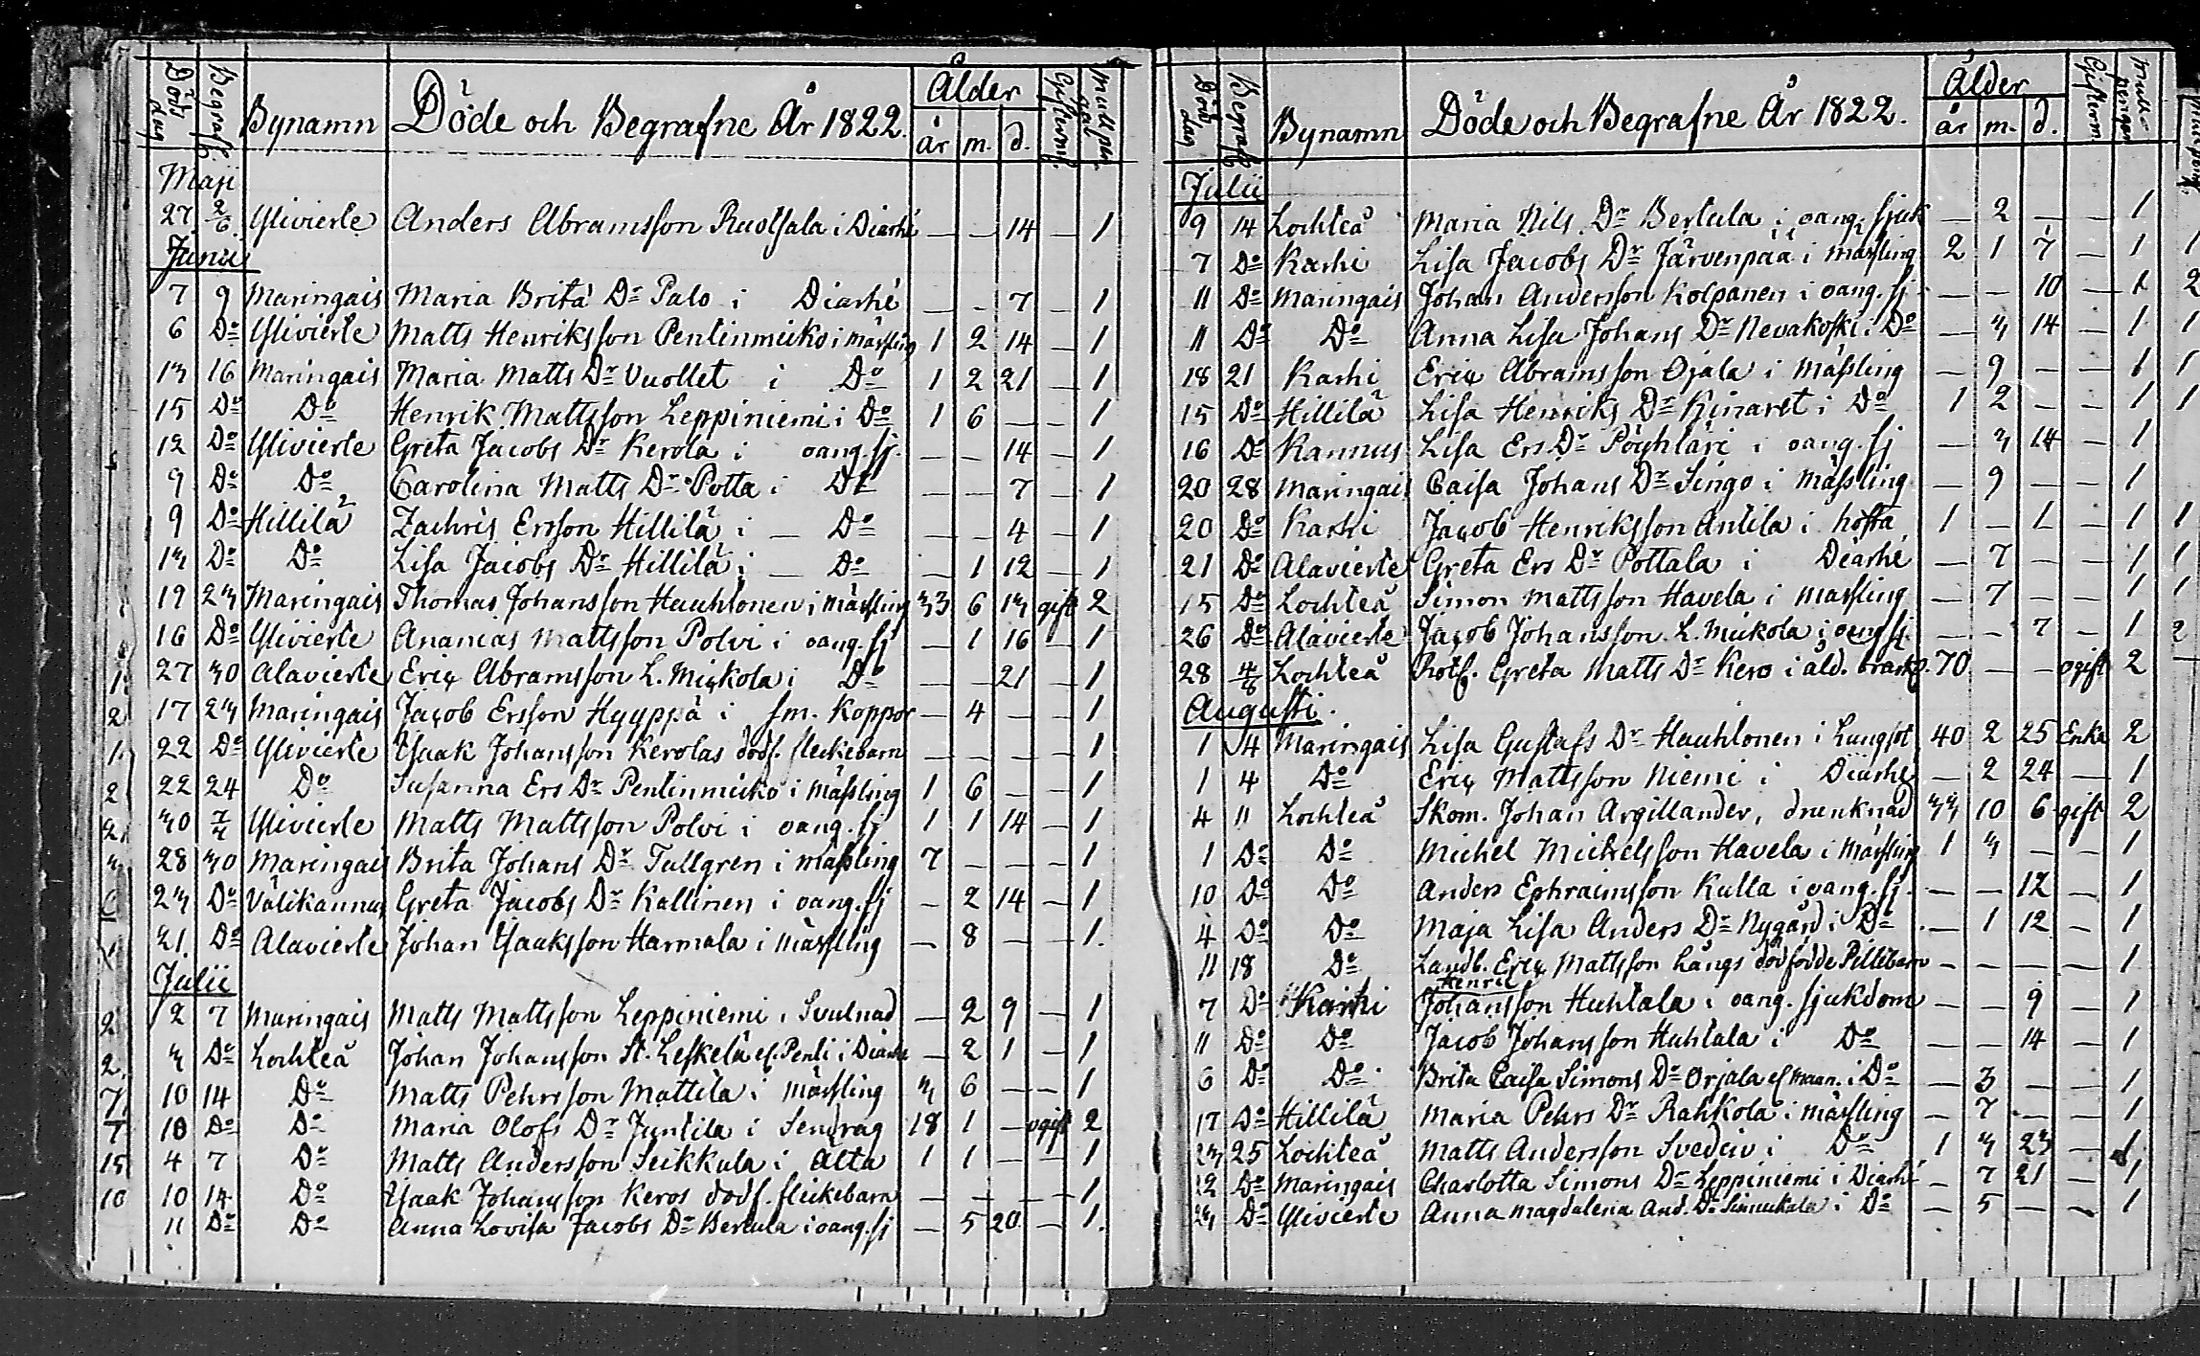 Döds dag Begrafn. Bynamn Döde och Begrafne År 1822. Ålder år m. d. Mull
Maji
27 2/6 Ylivierte Anders Abramsson Ruotsala i Diarhé — — 14 — 1
Junii
7 9 Maringais Maria Brita Dr Palo i Diarhé — - 7 — 1
6 Do Ylivierte Matts Henriksson Pentinmiko i Mässling 1 2 14 — 1
13 16 Maringais Maria Matts Dr Vuollet i Do 1 2 21 — 1
15 Do Do Henrik Mattsson Leppiniemi i Do 1 6 — — 1
12 Do Ylivierte Greta Jacobs Dr Kerola i oang. sj. — — 14 — 1
9 Do Do Carolina Matts Dr Potta i Do — — 7 — 1
9 Do Hillilä Zachris Ersson Hillilä i — Do — — 4 — 1
13 Do Do Lisa Jacobs Dr Hillilä i — Do — 1 12 — 1
19 23 Maringais Thomas Johansson Hauhtonen i Mässling 33 6 13 gift 2
16 Do Ylivierte Ananias Mattsson Polvi i oang. sj — 1 16 — 1
27 30 Alavierte Eric Abramsson L. Mickola i Do — — 21 — 1
17 23 Maringais Jacob Ersson Hyyppä i sm. Koppor — 4 — — 1
22 Do Ylivierte Isaak Johansson Kerolas dödf. flickebarn — — — — 1
22 24 Do Susanna Ers Dr Pentinmiko i Mässling 1 6 — — 1
30 7/7 Ylivierte Matts Mattsson Polvi i oang. sj 1 1 14 — 1
28 30 Maringais Brita Johans Dr Tallgren i mässling 7 — — — 1
23 Do Välikannus Greta Jacobs Dr Kallinen i oang. sj — 2 14 — 1
21. Do Alavierte Johan Isaaksson Harmala i mässling — 8 — — 1.
Julii
2 7 Maringais Matts Mattsson Leppiniemi i Svulnad — 2 9 — 1
3 Do Lochteå Johan Johansson St. Leskelä el. Penti i Diarhe — 2 1 — 1
10 14 Do Matts Pehrsson Mattila i Mässling 3 6 — — 1
10 Do Do Maria Olofs Dr Juntila i Sendrag 18 1 — ogift 2
4 7 Do Matts Andersson Seikkula i Älta 1 1 — — 1
10 14 Do Isaak Johansson Keros dödf. flickebarn — — — — 1
11 Do Do Anna Lovisa Jacobs Dr Bertula i oang. sj — 5 20 — 1.
Död dag Begrafn Bynamn Döde och Begrafne År 1822. Ålder år m. d. Gifterm. Mull-penger
Julii
9 14 Lochteå Maria Nils Dr Bertula i oang. sjuk — 2 — — 1
7 Do Karhi Lisa Jacobs Dr Järvenpää i mässling 2 1 7 — 1
11 Do Maringais Johan Andersson Kolpanen i oang. sj — — 10 — 1
11 Do Do Anna Lisa Johans Dr Nevakoski i Do — 3 14 — 1
18 21 Karhi Eric Abramsson Ojala i Mässling — 9 — — 1
15 Do Hillilä Lisa Henriks Dr Kinaret i Do 1 2 — — 1
16 Do Kannus Lisa Ers Dr i oang. sj — 3 14 — 1
20 28 Maringais Caisa Johans Dr Singo i Mässling — 9 — — 1
20 Do Karhi Jacob Henriksson Antila i hosta 1 — 1 — 1
21 Do Alavierte Greta Ers Dr Pottala i Diarhé — 7 — — 1
15 Do Lochteå Simon Mattsson Havela i mässling — 7 — — 1
26 Do Alavierte Jacob Johansson L. Mickola i oang. sj. — - 7 — 1
28 4/8 Lochteå Greta Matts Dr Kero i åld. 70 — — ogift 2
Augusti.
1 4 Maringais Lisa Gustafs Dr Hauhtonen i Lungsot 40 2 25 Enka 2
1 4 Do Eric Mattsson Niemi i Diarhé — 2 24 — 1
4 11 Lochteå Skom. Johan Argillander, drunknad 33 10 6 gift 2
1 Do Do Michel Michelsson Havela i Mässling 1 3 — — 1
10 Do Do Anders Ephraimsson Kulla i oang. sj. — — 12 — 1
4 Do Do Maja Lisa Anders Dr Nygård i Do — 1 12 - 1
11 18 Do Landb. Eric Mattsson Långs dödfödde Pillebarn — — — — 1
Henric
7 Do Karhi Johansson Huhtala i oang. sjukdom — — 9 — 1
11 Do Do Jacob Johansson Huhtala i Do — — 14 — 1
6 Do Do Brita Caisa Simons Dr Orjala el Maan. i Do — 3 — — 1
17 Do Hillilä Maria Pehrs Dr Rahkola i mässling — 7 — — 1
23 25 Lochteå Matts Andersson i Do 1 3 23 — 1
22 Do Maringais Charlotta Simons Dr Leppiniemi i Diarhé — 7 21 — 1
23 Do Ylivierte Anna Magdalena And. Dr i Do — 5 — — 1